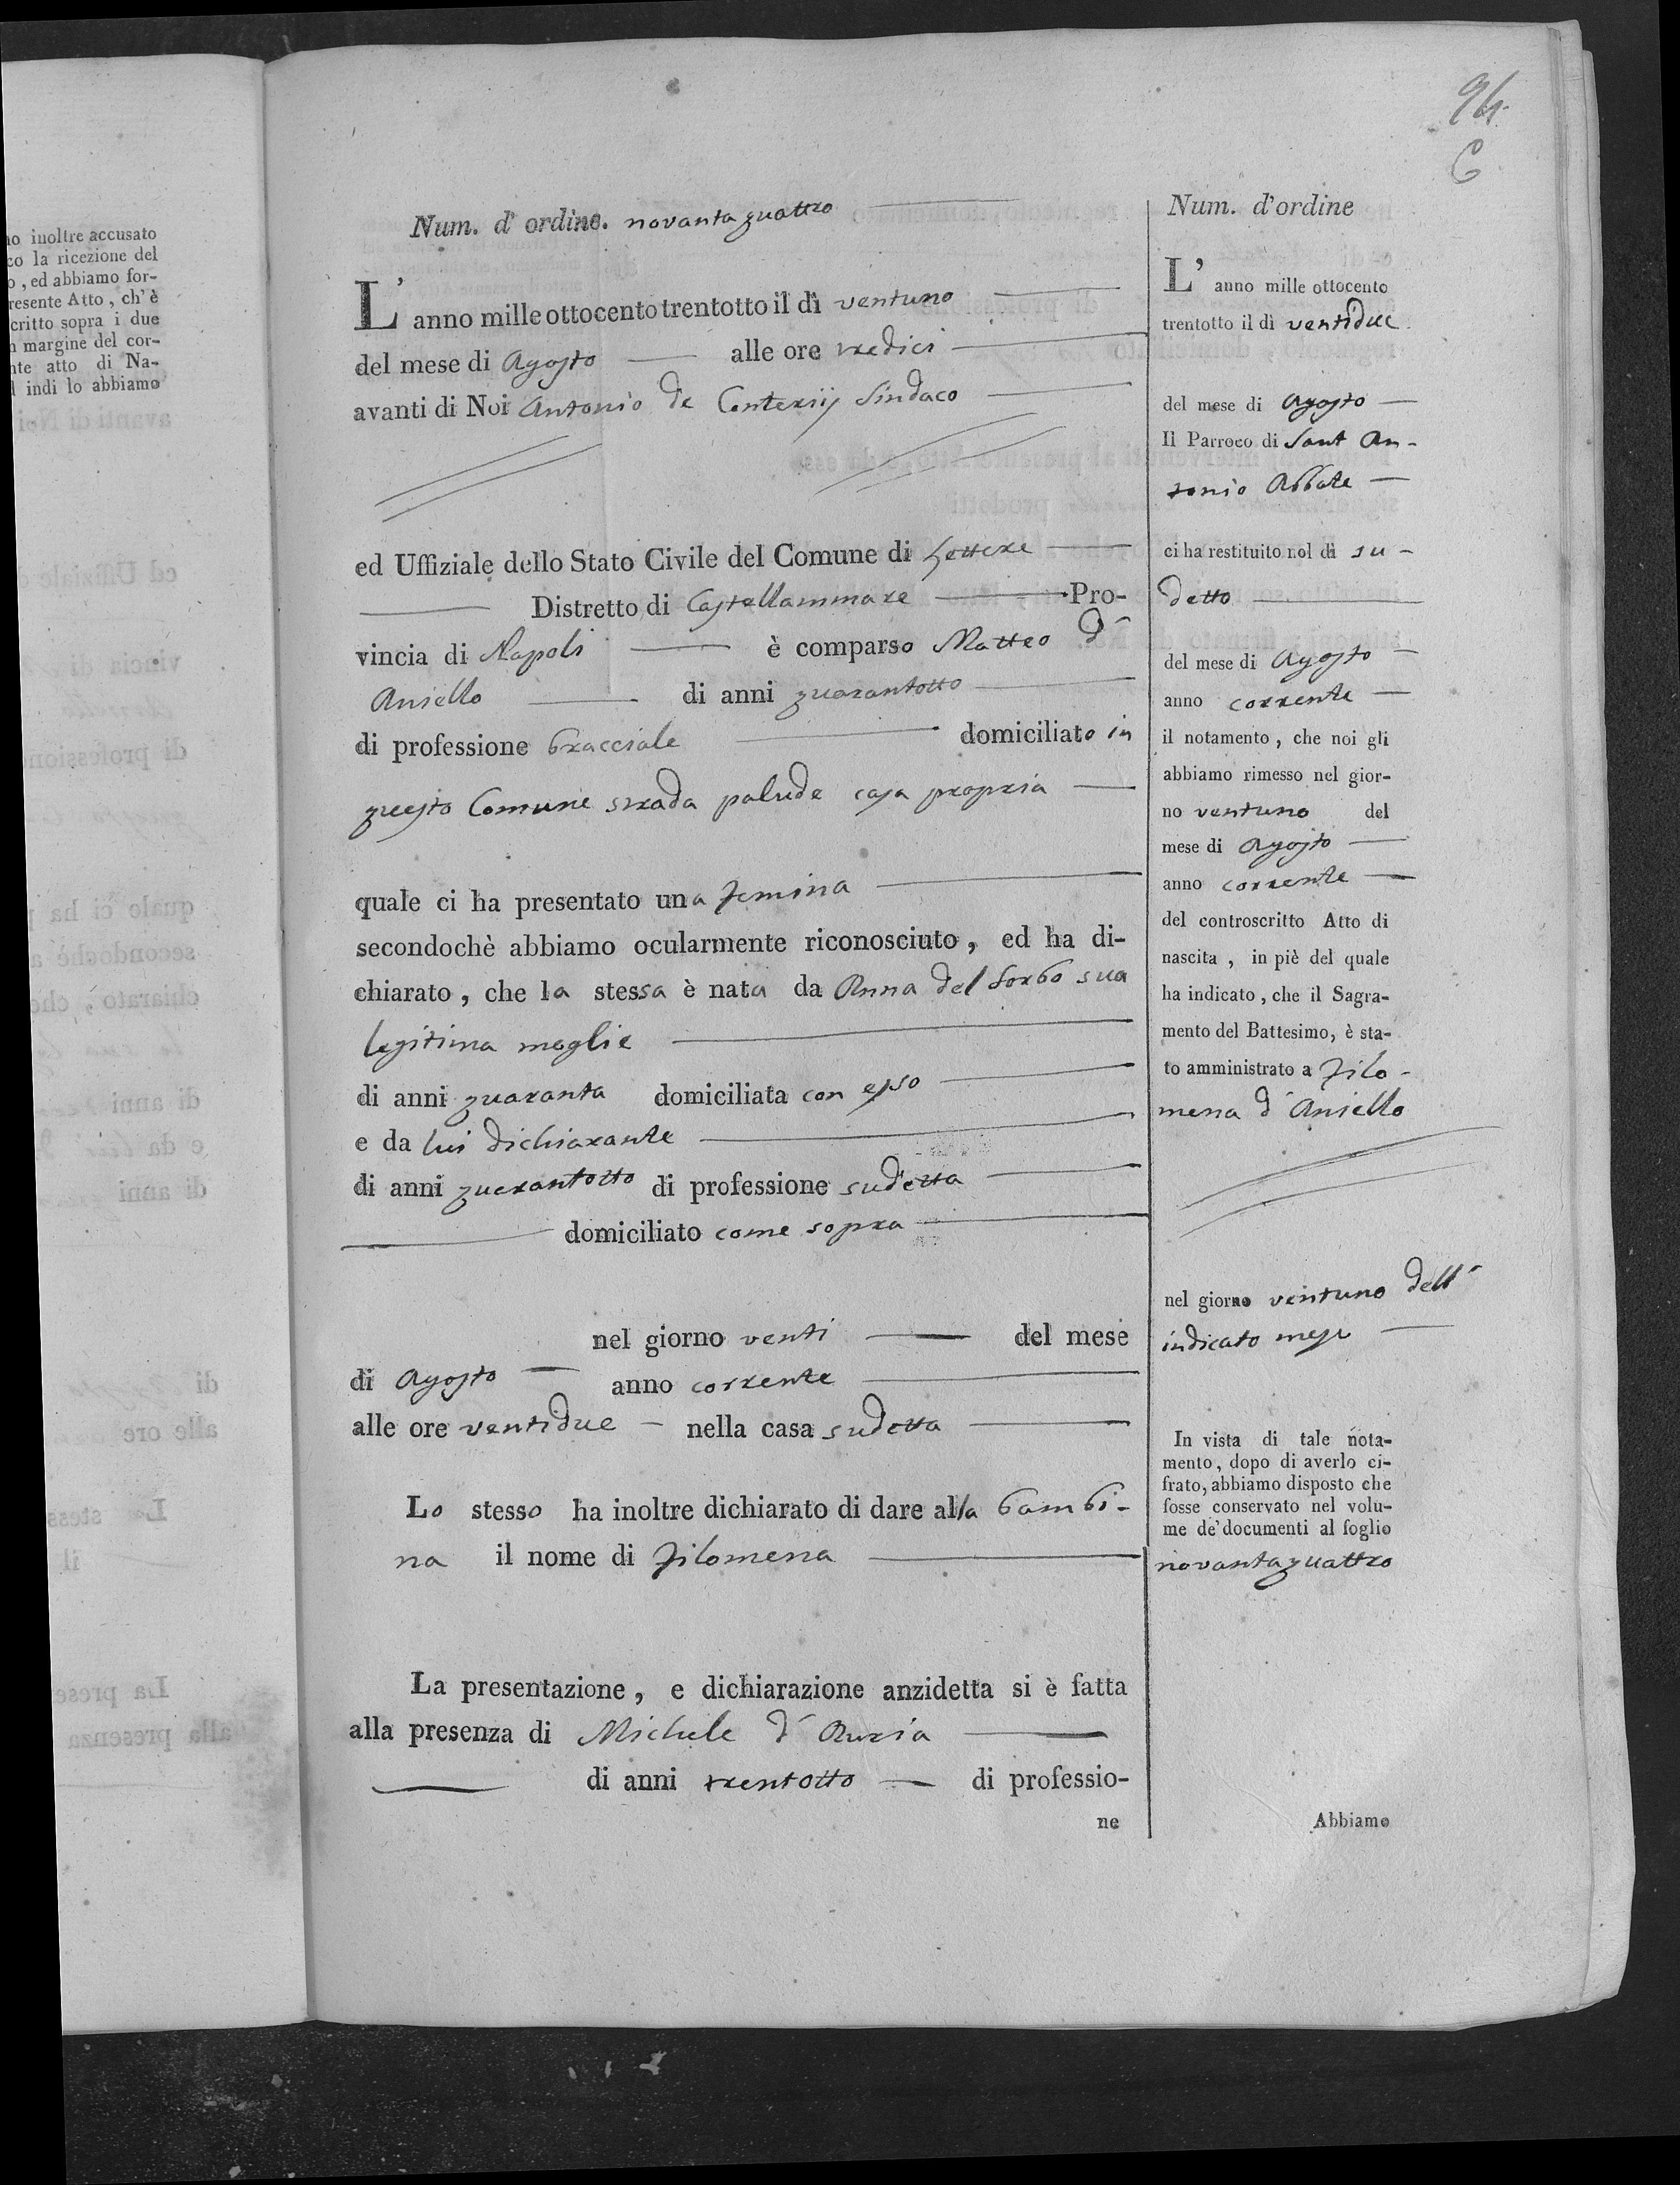 94.
6
no inoltre accusato
co la ricezione del
o, ed abbiamo for-
resente Atto, ch'è
critto sopra i due
n margine del cor-
nte atto di Na-
indi lo abbiamo
Num. d' ordine. novantaquattro
L' anno mille ottocento trentotto il dì ventuno
del mese di Agosto alle ore tredici
avanti di Noi Antonio de Conteriij Sindaco
ed Uffiziale dello Stato Civile del Comune di Lettere
Distretto di Castellammare Pro-
vincia di Napoli è comparso Matteo d'
Aniello di anni quarantotto
di professione bracciale domiciliato in
questo Comune strada palude casa propria
quale ci ha presentato una femina
secondochè abbiamo ocularmente riconosciuto, ed ha di-
chiarato, che la stessa è nata da Anna del Sorbo sua
legitima moglie
di anni quaranta domiciliata con esso
e da lui dichiarante
di anni quarantotto di professione sudetta
domiciliato come sopra
nel giorno venti del mese
di Agosto anno corrente
alle ore ventidue nella casa sudetta
Lo stesso ha inoltre dichiarato di dare alla bambi-
na il nome di Filomena
La presentazione, e dichiarazione anzidetta si è fatta
alla presenza di Michele d'Auria
di anni trentotto di professio-
ne
Num. d'ordine
L' anno mille ottocento
trentotto il dì ventidue
del mese di Agosto
Il Parroco di Sant An-
tonio Abbate
ci ha restituito nel dì su-
detto
del mese di Agosto
anno corrente
il notamento, che noi gli
abbiamo rimesso nel gior-
no ventuno del
mese di Agosto
anno corrente
del controscritto Atto di
nascita, in piè del quale
ha indicato, che il Sagra-
mento del Battesimo, è sta-
to amministrato a Filo-
mena d'Aniello
nel giorno ventuno dell'
indicato mese
In vista di tale nota-
mento, dopo di averlo ci-
frato, abbiamo disposto che
fosse conservato nel volu-
me de' documenti al foglio
novantaquattro
Abbiamo